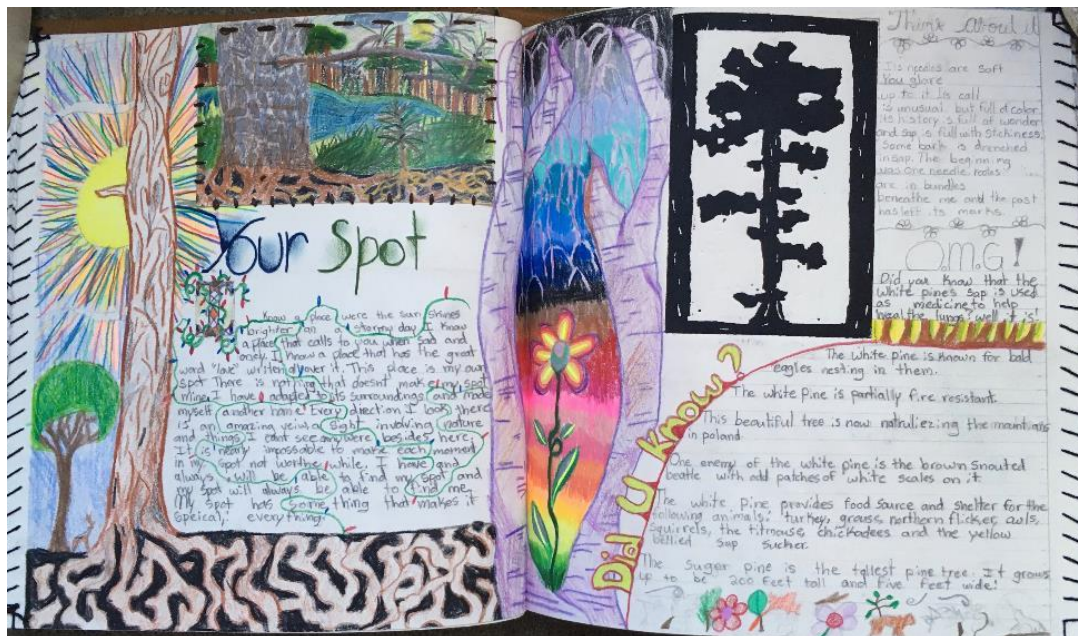 Your Spot
I know a place were the sun shines
brighter on a stormy day. I know
a place that calls to you when sad and
lonely. I know a place that has the great
word "love" written all over it. This place is my own
spot There is nothing that doesn't make my spot
mine. I have adapted to its surroundings and made
myself another home. Every direction I look there
is an amazing sight involving nature
and things I cant see anywere besides here.
It is nearly impossible to make each moment
in my spot not worthe while. I have and
always will be able to find my spot and
my spot will always be able to find me.
My spot has some thing that makes it
speical; everything.
Think About it
Its needles are soft
You glare
up to it. Its call
is unusual but full of color.
Its history is full of wonder
and sap is full with stickiness.
Some bark is drenched
in sap. The beginning
was one needle, now
are in bundles
beneathe me and the past
has left its marks.
O.M.G!
Did you know that the
white pine's sap is used
as medicine to help
heal the lungs? well it is!
Did U Know?
The white pine is known for bald
eagles nesting in them.
The white pine is partially fire resistant.
This beautiful tree is now natruliezing the maintians
in poland.
One enemy of the white pine is the brown snouted
beatle with odd patches of white scales on it
The white pine provides food source and shelter for the
following animals: turkey, grouss, northern flicker, owls,
squirrels, the titmouse, chickadees and the yellow
bellied sap sucker.
The sugar pine is the tallest pine tree. It grows
up to be 200 feet tall and five feet wide!